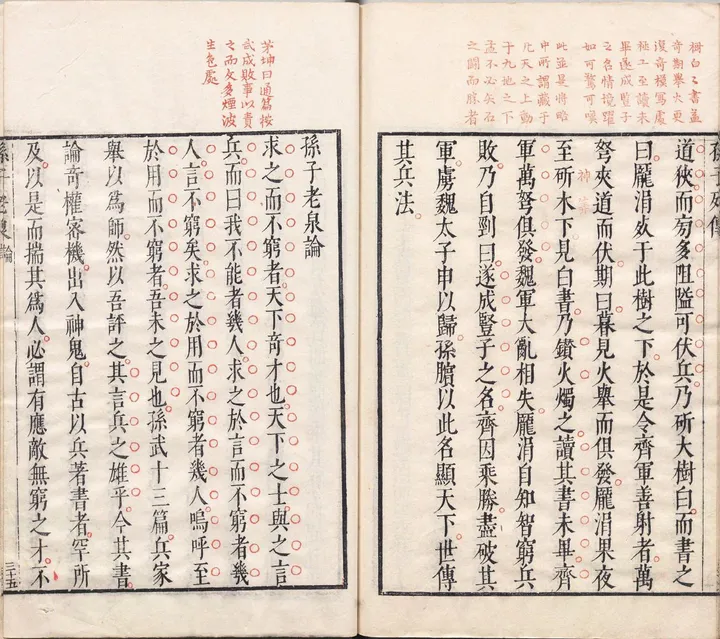 樹白之書蓋
奇矧舉火更
復奇模寫處
極工至讀未
畢遂成豎子
之名情境躍
如可驚可嘆
此並是將略
中所謂藏于
九天之上動
于九地之下
孟不必矢石
之鬪而麻者
神
道狹而旁多阻隘可伏兵乃斫大樹白而書之
曰龐涓死于此樹之下於是令齊軍善射者萬
弩夾道而伏期曰暮見火舉而俱發龐涓果夜
至斫木下見白書乃鑽火燭之讀其書未畢齊
軍萬弩俱發魏軍大亂相失龐涓自知智窮兵
敗乃自剄曰遂成豎子之名齊因乘勝盡破其
軍虜魏太子申以歸孫臏以此名顯天下世傳
其兵法
茅坤曰通篇按
武成敗事以責
之而文多煙波
生色處
孫子老泉論
求之而不窮者天下奇才也天下之士與之言
兵而曰我不能者幾人求之於言而不窮者幾
人言不窮矣求之於用而不窮者幾人嗚呼至
於用而不窮者吾未之見也孫武十三篇兵家
舉以為師然以吾評之其言兵之雄乎今其書
論奇權密機出入神鬼自古以兵著書者罕所
及以是而揣其為人必謂有應敵無窮之才不
三十五